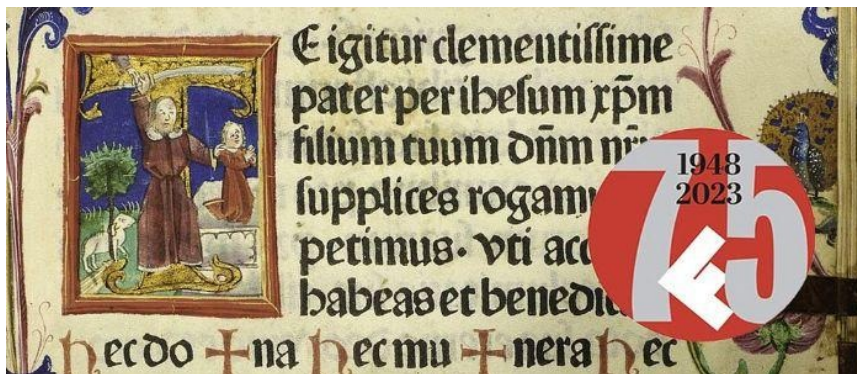 TE igitur clementiſſime
pater per iheſum xp̄m
filium tuum dn̄m
ſupplices
petimus. vti
habeas et
hec do + na hec mu + nera hec
1948
2023
75